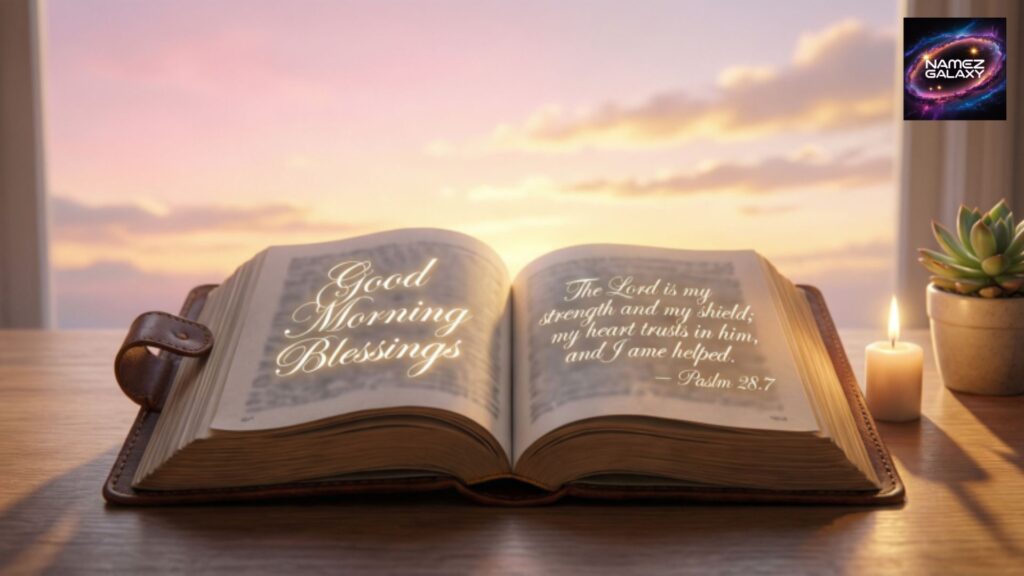 NAMEZ
GALAXY
Good
Morning
Blessings
The Lord is my
strength and my shield;
my heart trusts in him,
and I ame helped.
— Paslm 28.7